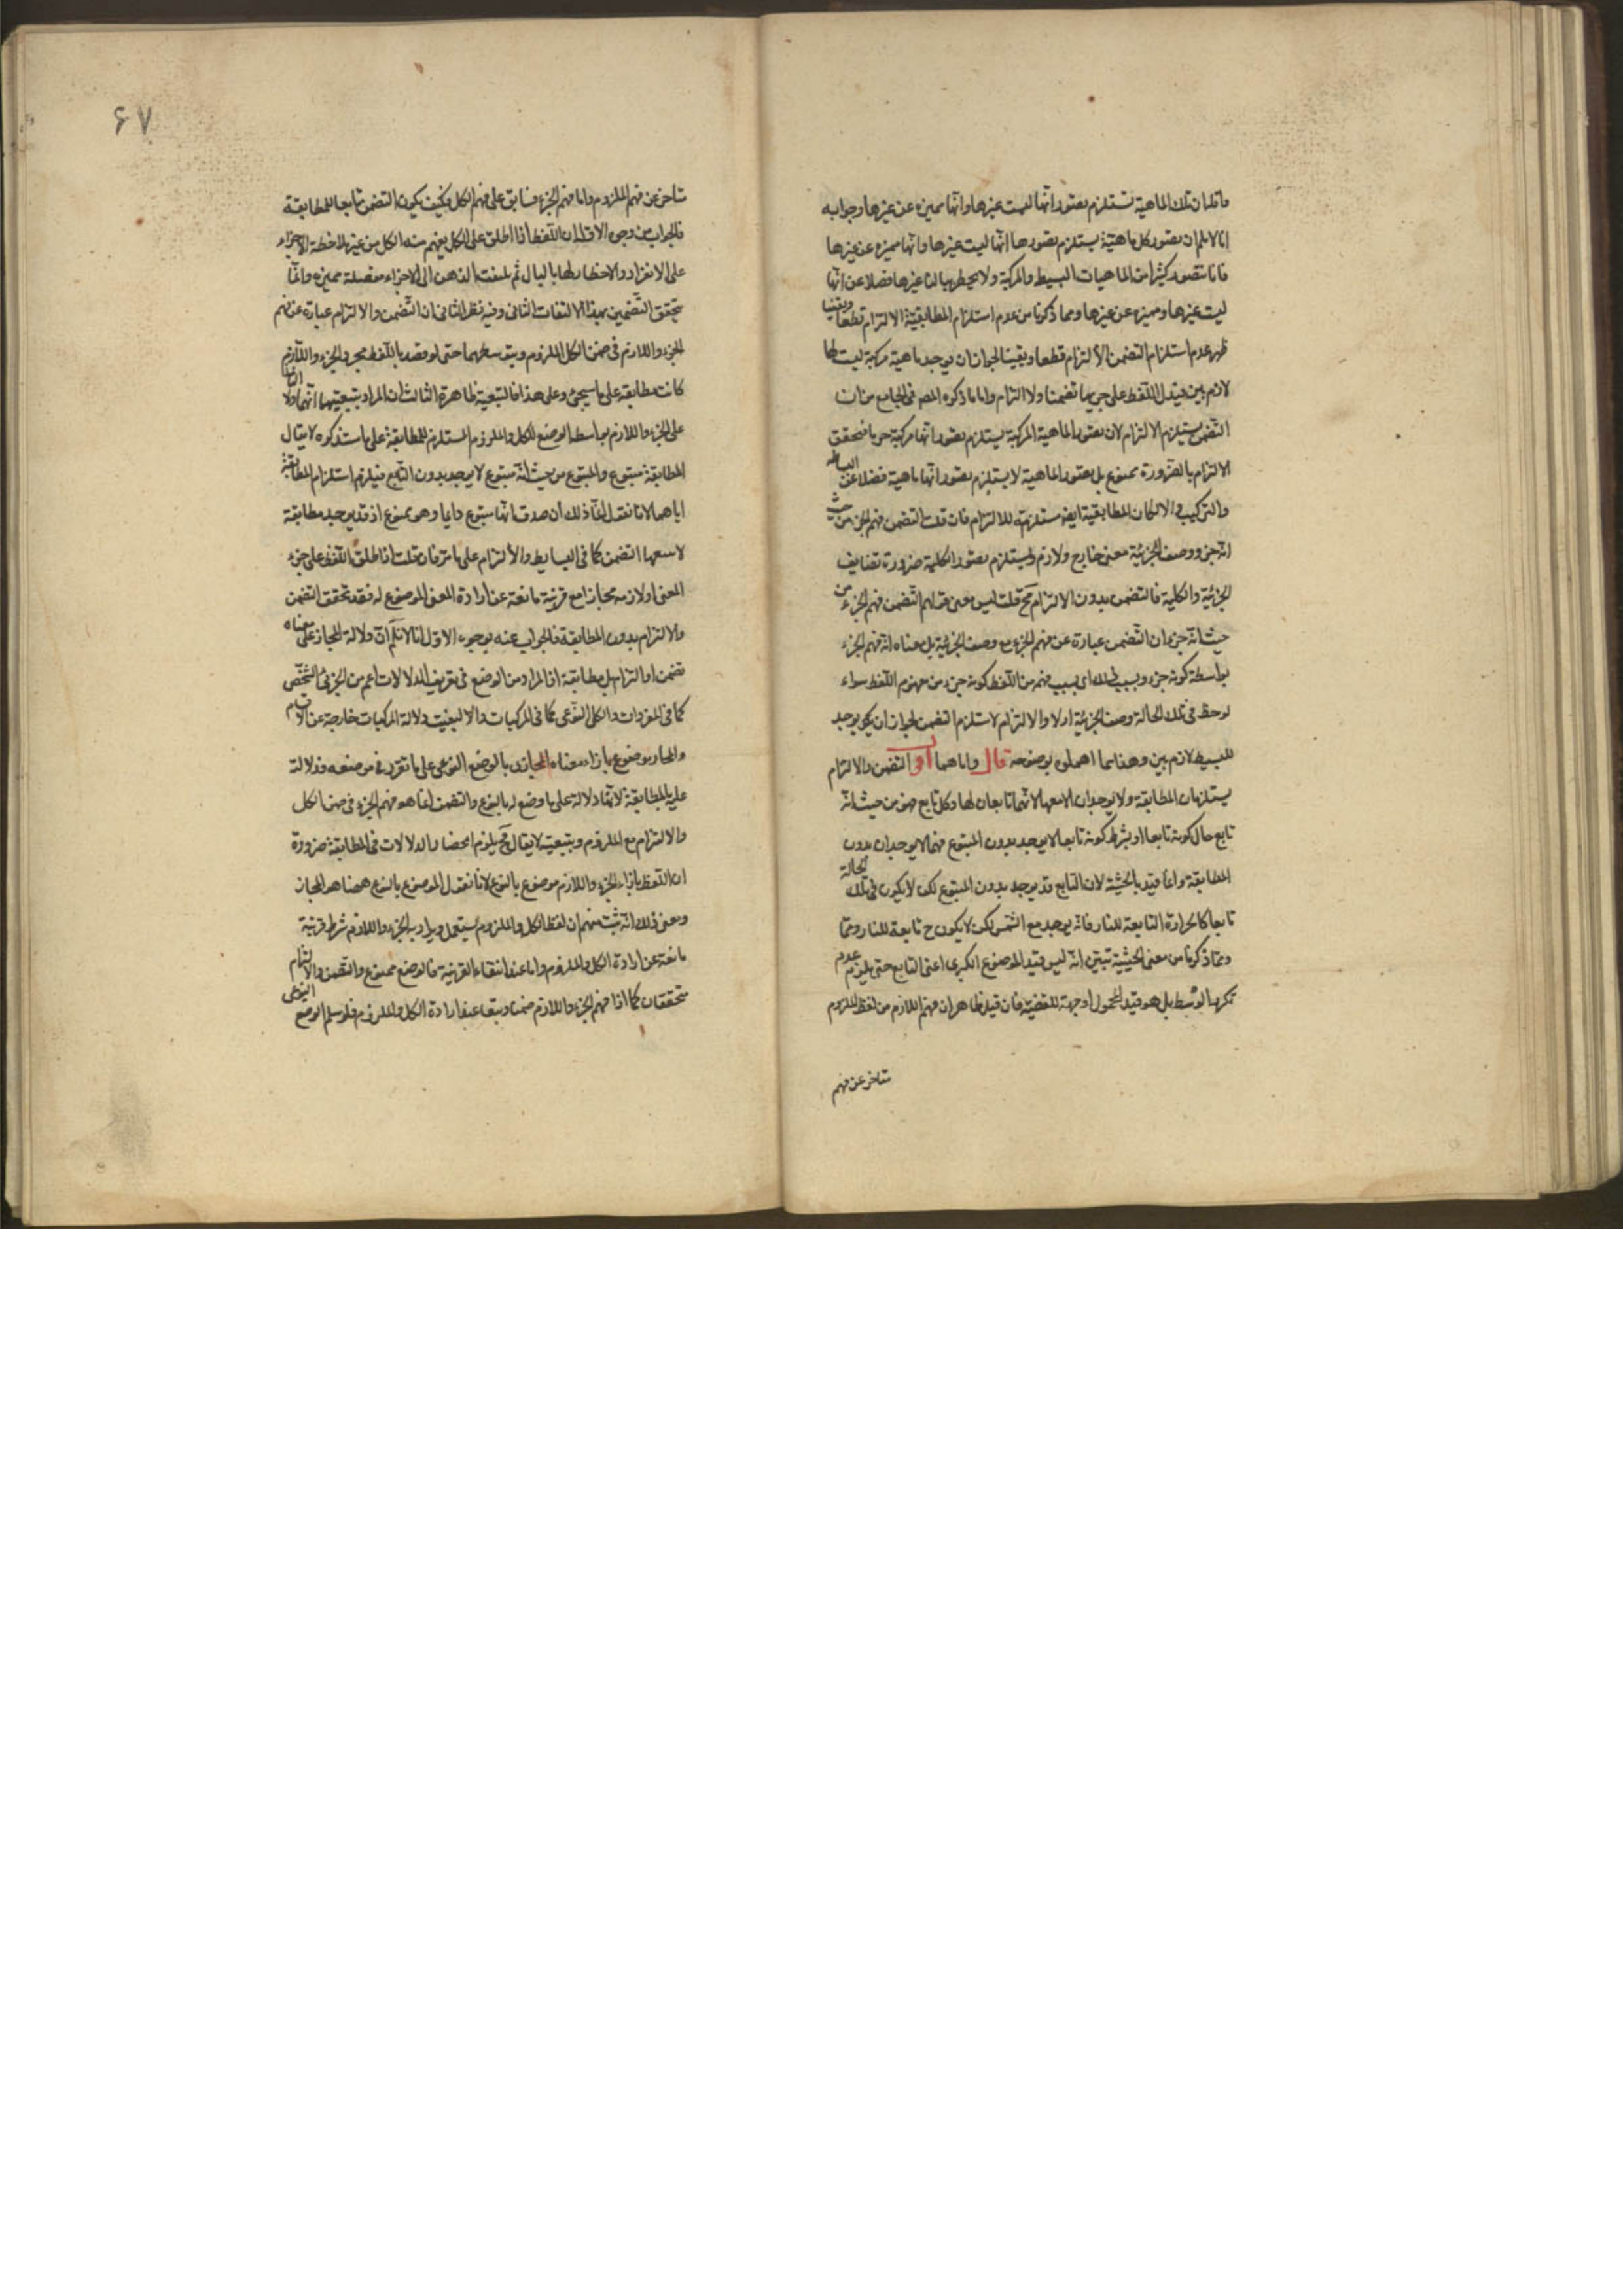 وقلدان تلك الماهية تستلزم تصور انها ليست غيرها وانها مميزة عن غيرها وجوابه
انا لانسلم ان تصور كل ماهية يستلزم تصورها انها ليست غيرها وانها مميزة عن غيرها
فانا نتصور كثيرا من الماهيات البسيطة والمركبة ولا يخطر ببالنا غيرها فضلا عن انها
ليست غيرها ومميزة عن غيرها ومما ذكرنا من عدم استلزام المطابقية الالتزام قطعا ويقينا
ظهر عدم استلزام التضمن الالتزام قطعا ويقينا لجواز ان يوجد ماهية مركبة ليست لها
لازم بين فيدل اللفظ على جزءيها تضمنا ولا التزام واما ما ذكره المص في الجامع من ان
التضمن يستلزم الالتزام لان تصور الماهية المركبة يستلزم تصور انها مركبة حتى يتحقق
الالتزام بالضرورة ممنوع بل تصور الماهية لا يستلزم تصور انها ماهية فضلا عن البساطة
والتركيب والا لكان المطابقية ايضا مستلزمة للالتزام فان قلت التضمن فهم الجزء من حيث
انه جزء ووصف الجزئية معنى خارج ولازم ويستلزم تصور الكلية ضرورة تضايف
الجزئية والكلية فالتضمن بدون الالتزام مح قلت ليس معنى قولهم التضمن فهم الجزء من
حيث انه جزء ان التضمن عبارة عن فهم الجزء مع وصف الجزئية بل معناه انه فهم الجزء
بواسطة كونه جزء وبسببه اى بسبب فهمه من اللفظ كونه جزء من مفهوم اللفظ سواء
لوحظ في تلك الحالة وصف الجزئية اولا والالتزام لا يستلزم التضمن لجواز ان يكون يوجد
للبسيط لازم بين وهذا مما اهملوه لوضوحه قال واما هما اقول التضمن والالتزام
يستلزمان المطابقة ولا يوجدان الا معها لانهما تابعان لها وكل تابع فهو من حيث انه
تابع حال كونه تابعا او بشرط كونه تابعا لا يوجد بدون المتبوع فهما لا يوجدان بدون
المطابقة وانما قيد بالحيثية لان التابع قد يوجد بدون المتبوع لكن لا يكون في تلك الحالة
تابعا كالحرارة التابعة للنار فانه يوجد مع الشمس لكن لا يكون ح تابعة للنار ومما
ومما ذكرنا من معنى الحيثية تبين انه ليس قيد الموضوع الكبرى اعنى التابع حتى يلزم عدم
تكرر الوسط بل هو قيد المحمول او جهة للقضية فان قيل ظاهر ان فهم اللازم من لفظ الملزوم
متاخر عن فهم
٦٧
متاخر عن فهم الملزوم واما فهم الجزء فسابق على فهم الكل فكيف يكون التضمن تابعا للمطابقة
فالجواب من وجوه الاول ان اللفظ اذا اطلق على الكل يفهم منه الكل من غير ملاحظة الاجزاء
على الانفراد والاخطار لها بالبال ثم يلتفت الذهن الى الاجزاء مفصلة مميزة وانما
يتحقق التضمين بهذا الالتفات الثانى وفيه نظر الثانى ان التضمن والالتزام عبارة عن فهم
الجزء واللازم في ضمن الكل الملزوم وبتوسطهما حتى لو قصد باللفظ مجرد الجزء واللازم
كانت مطابقة على ما سيجئ وعلى هذا فالتبعية ظاهرة الثالث ان المراد بتبعيتهما انهما دلالة
على الجزء واللازم بواسطة الوضع للكل والملزوم المستلزم للمطابقة على ما ستذكره لا يقال
المطابقة متبوع والمتبوع من حيث انه متبوع لا يوجد بدون التابع فيلزم استلزام المطابقة
اياهما لانا نقول انما ذلك ان صدق انها متبوع دائما وهو ممنوع اذ قد يوجد مطابقة
لا معها التضمن كما في البسايط والالتزام على ما مر فان قلت اذا اطلق اللفظ على جزء
المعنى او لازمه مجازا مع قرينة مانعة عن ارادة المعنى الموضوع له فقد تحقق التضمن
والالتزام بدون المطابقة فالجواب عنه بوجوه الاول انا لا نسلم ان دلالة المجاز على معناه
تضمن او التزام بل مطابقة اذ المراد من الوضع في تعريف الدلالات اعم من الجزئى الشخصى
كما في المفردات والكلى النوعى كما في المركبات والا لبقيت دلالة المركبات خارجة عن الاقسام
والمجاز موضوع بازاء معناه المجازى بالوضع النوعى على ما تقرر في موضعه فدلالته
عليه بالمطابقة لانها دلالة على ما وضع له بالنوع والتضمن انما هو فهم الجزء في ضمن الكل
والالتزام مع الملزوم وبتبعيته لا يقال مح يلزم انحصار الدلالات في المطابقة ضرورة
ان اللفظ بازاء الجزء واللازم موضوع بالنوع لانا نقول الموضوع بالنوع ههنا هو المجاز
ومعنى ذلك انه ثبت منهم ان لفظ الكل والملزوم يستعمل ويراد به الجزء واللازم شرط قرينة
مانعة عن ارادة الكل والملزوم واما عند انتفاء القرينة فالوضع ممنوع والتضمن والالتزام
متحققان كما اذا فهم الجزء واللازم ضمنا وتبعا عند ارادة الكل والملزوم فلو سلم الوضع النوعى